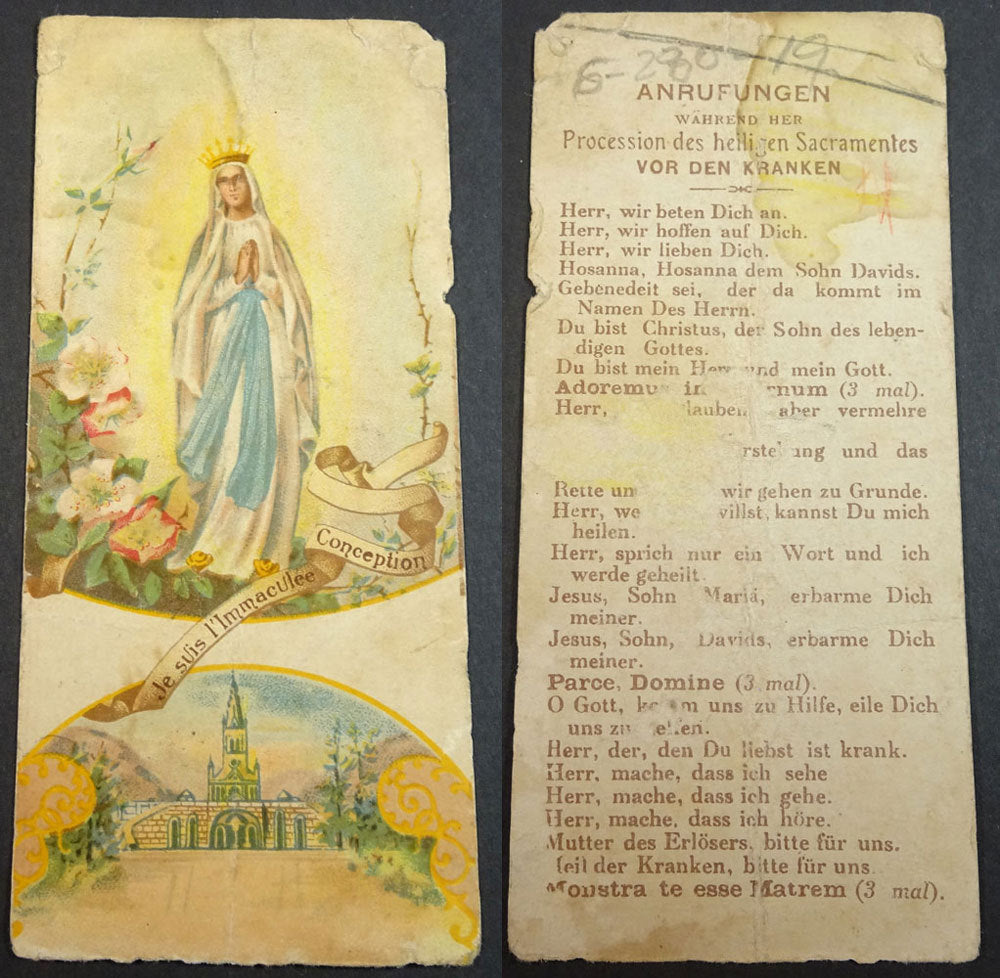 Je suis l'Immaculée
Conception
6-280-19
ANRUFUNGEN
WÄHREND HER
Procession des heiligen Sacramentes
VOR DEN KRANKEN
Herr, wir beten Dich an.
Herr, wir hoffen auf Dich.
Herr, wir lieben Dich.
Hosanna, Hosanna dem Sohn Davids.
Gebenedeit sei, der da kommt im
Namen Des Herrn.
Du bist Christus, der Sohn des leben-
digen Gottes.
Du bist mein Herr und mein Gott.
Adoremus in (3 mal).
Herr, aber vermehre
und das
Rette wir gehen zu Grunde.
Herr, kannst Du mich
heilen.
Herr, sprich nur ein Wort und ich
werde geheilt.
Jesus, Sohn Mariä, erbarme Dich
meiner.
Jesus, Sohn, Davids, erbarme Dich
meiner.
Parce, Domine (3 mal).
O Gott, komm uns zu Hilfe, eile Dich
uns zu helfen.
Herr, der, den Du liebst ist krank.
Herr, mache, dass ich sehe
Herr, mache, dass ich gehe.
Herr, mache, dass ich höre.
Mutter des Erlösers, bitte für uns.
Heil der Kranken, bitte für uns
Monstra te esse Matrem (3 mal).